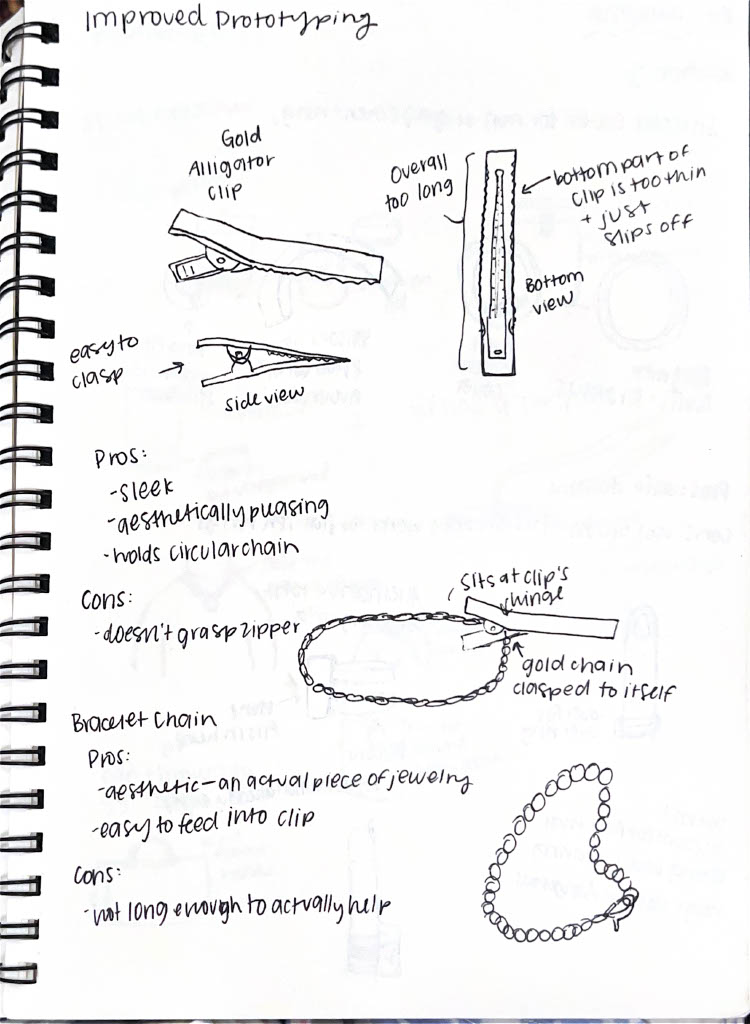 Improved Prototyping
Gold
Alligator
Clip
Overall
too long
bottom part of
clip is too thin
+ just
slips off
Bottom
view
easy to
clasp
side view
Pros:
-sleek
-aesthetically pleasing
-holds circular chain
Cons:
-doesn't grasp zipper
sits at clip's
hinge
gold chain
clasped to itself
Bracelet Chain
Pros:
-aesthetic-an actual piece of jewelry
-easy to feed into clip
Cons:
-not long enough to actually help